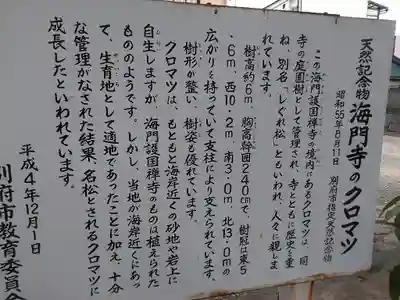 天然記念物 海門寺のクロマツ
昭和55年8月11日 別府市指定天然記念物
この海門護国禅寺の境内にあるクロマツは、同
寺の庭園樹として管理され、寺とともに歴史を重
ね、別名「しぐれ松」ともいわれ、人々に親しま
れています。
樹高約6m、胸高幹囲240cmで、樹冠は東5
.6m、西10.2m、南3.0m、北13.0mの
広がりを持っていて支柱により支えられています。
樹形が整い、樹姿も優れています。
クロマツは、もともと海岸近くの砂地や岩上に
自生しますが、海門護国禅寺のものは植えられた
もののようです。しかし、当地が海岸近くにあっ
て、生育地として適地であったことに加え、十分
な管理がなされた結果、名松とされるクロマツに
成長したといわれています。
平成4年12月1日
別府市教育委員会